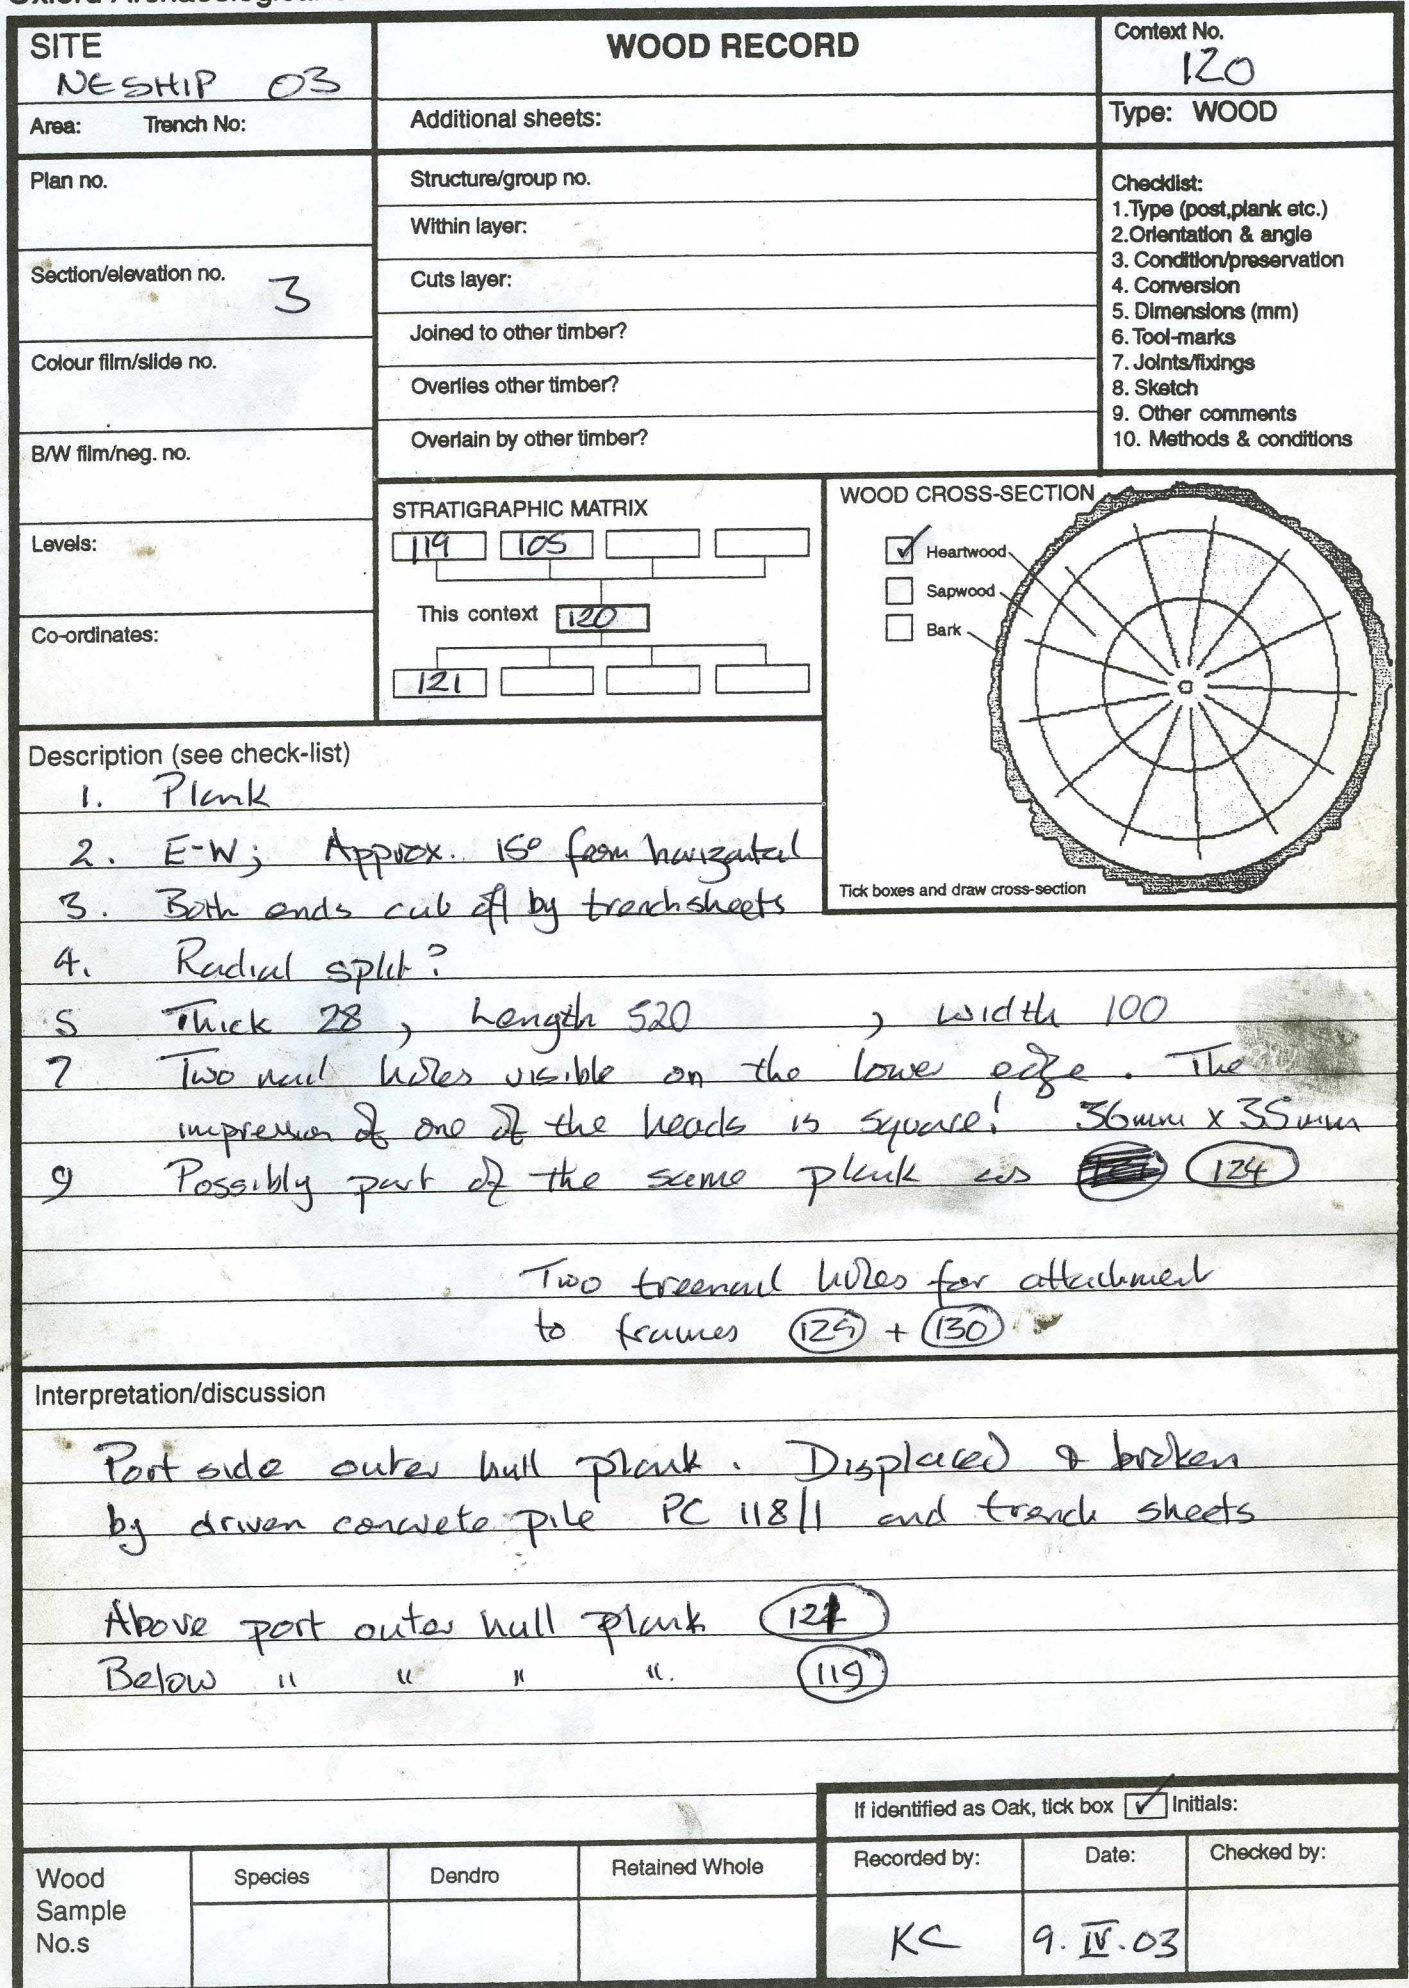 SITE
NESHIP 03
WOOD RECORD
Context No.
120
Area: Trench No:
Additional sheets:
Type: WOOD
Plan no.
Structure/group no.
Within layer:
Section/elevation no. 3
Cuts layer:
Joined to other timber?
Colour film/slide no.
Overlies other timber?
Overlain by other timber?
B/W film/neg. no.
Checklist:
1.Type (post,plank etc.)
2.Orientation & angle
3. Condition/preservation
4. Conversion
5. Dimensions (mm)
6. Tool-marks
7. Joints/fixings
8. Sketch
9. Other comments
10. Methods & conditions
Levels:
Co-ordinates:
STRATIGRAPHIC MATRIX
119 105
This context 120
121
WOOD CROSS-SECTION
Heartwood
Sapwood
Bark
Tick boxes and draw cross-section
Description (see check-list)
1. Plank
2. E-W; Approx. 15° from horizontal
3. Both ends cut off by trench sheets
4. Radial split?
5 Thick 28, Length 520, width 100
7 Two nail holes visible on the lower edge. The
impression of one of the heads is square! 36mm x 35mm
9 Possibly part of the same plank as 124
Two treenail holes for attachment
to frames 129 + 130
Interpretation/discussion
Port side outer hull plank. Displaced & broken
by driven concrete pile PC 118/1 and trench sheets
Above port outer hull plank 121
Below " " " " 119
If identified as Oak, tick box Initials:
Wood Sample No.s
Species
Dendro
Retained Whole
Recorded by:
KC
Date:
9.IV.03
Checked by: